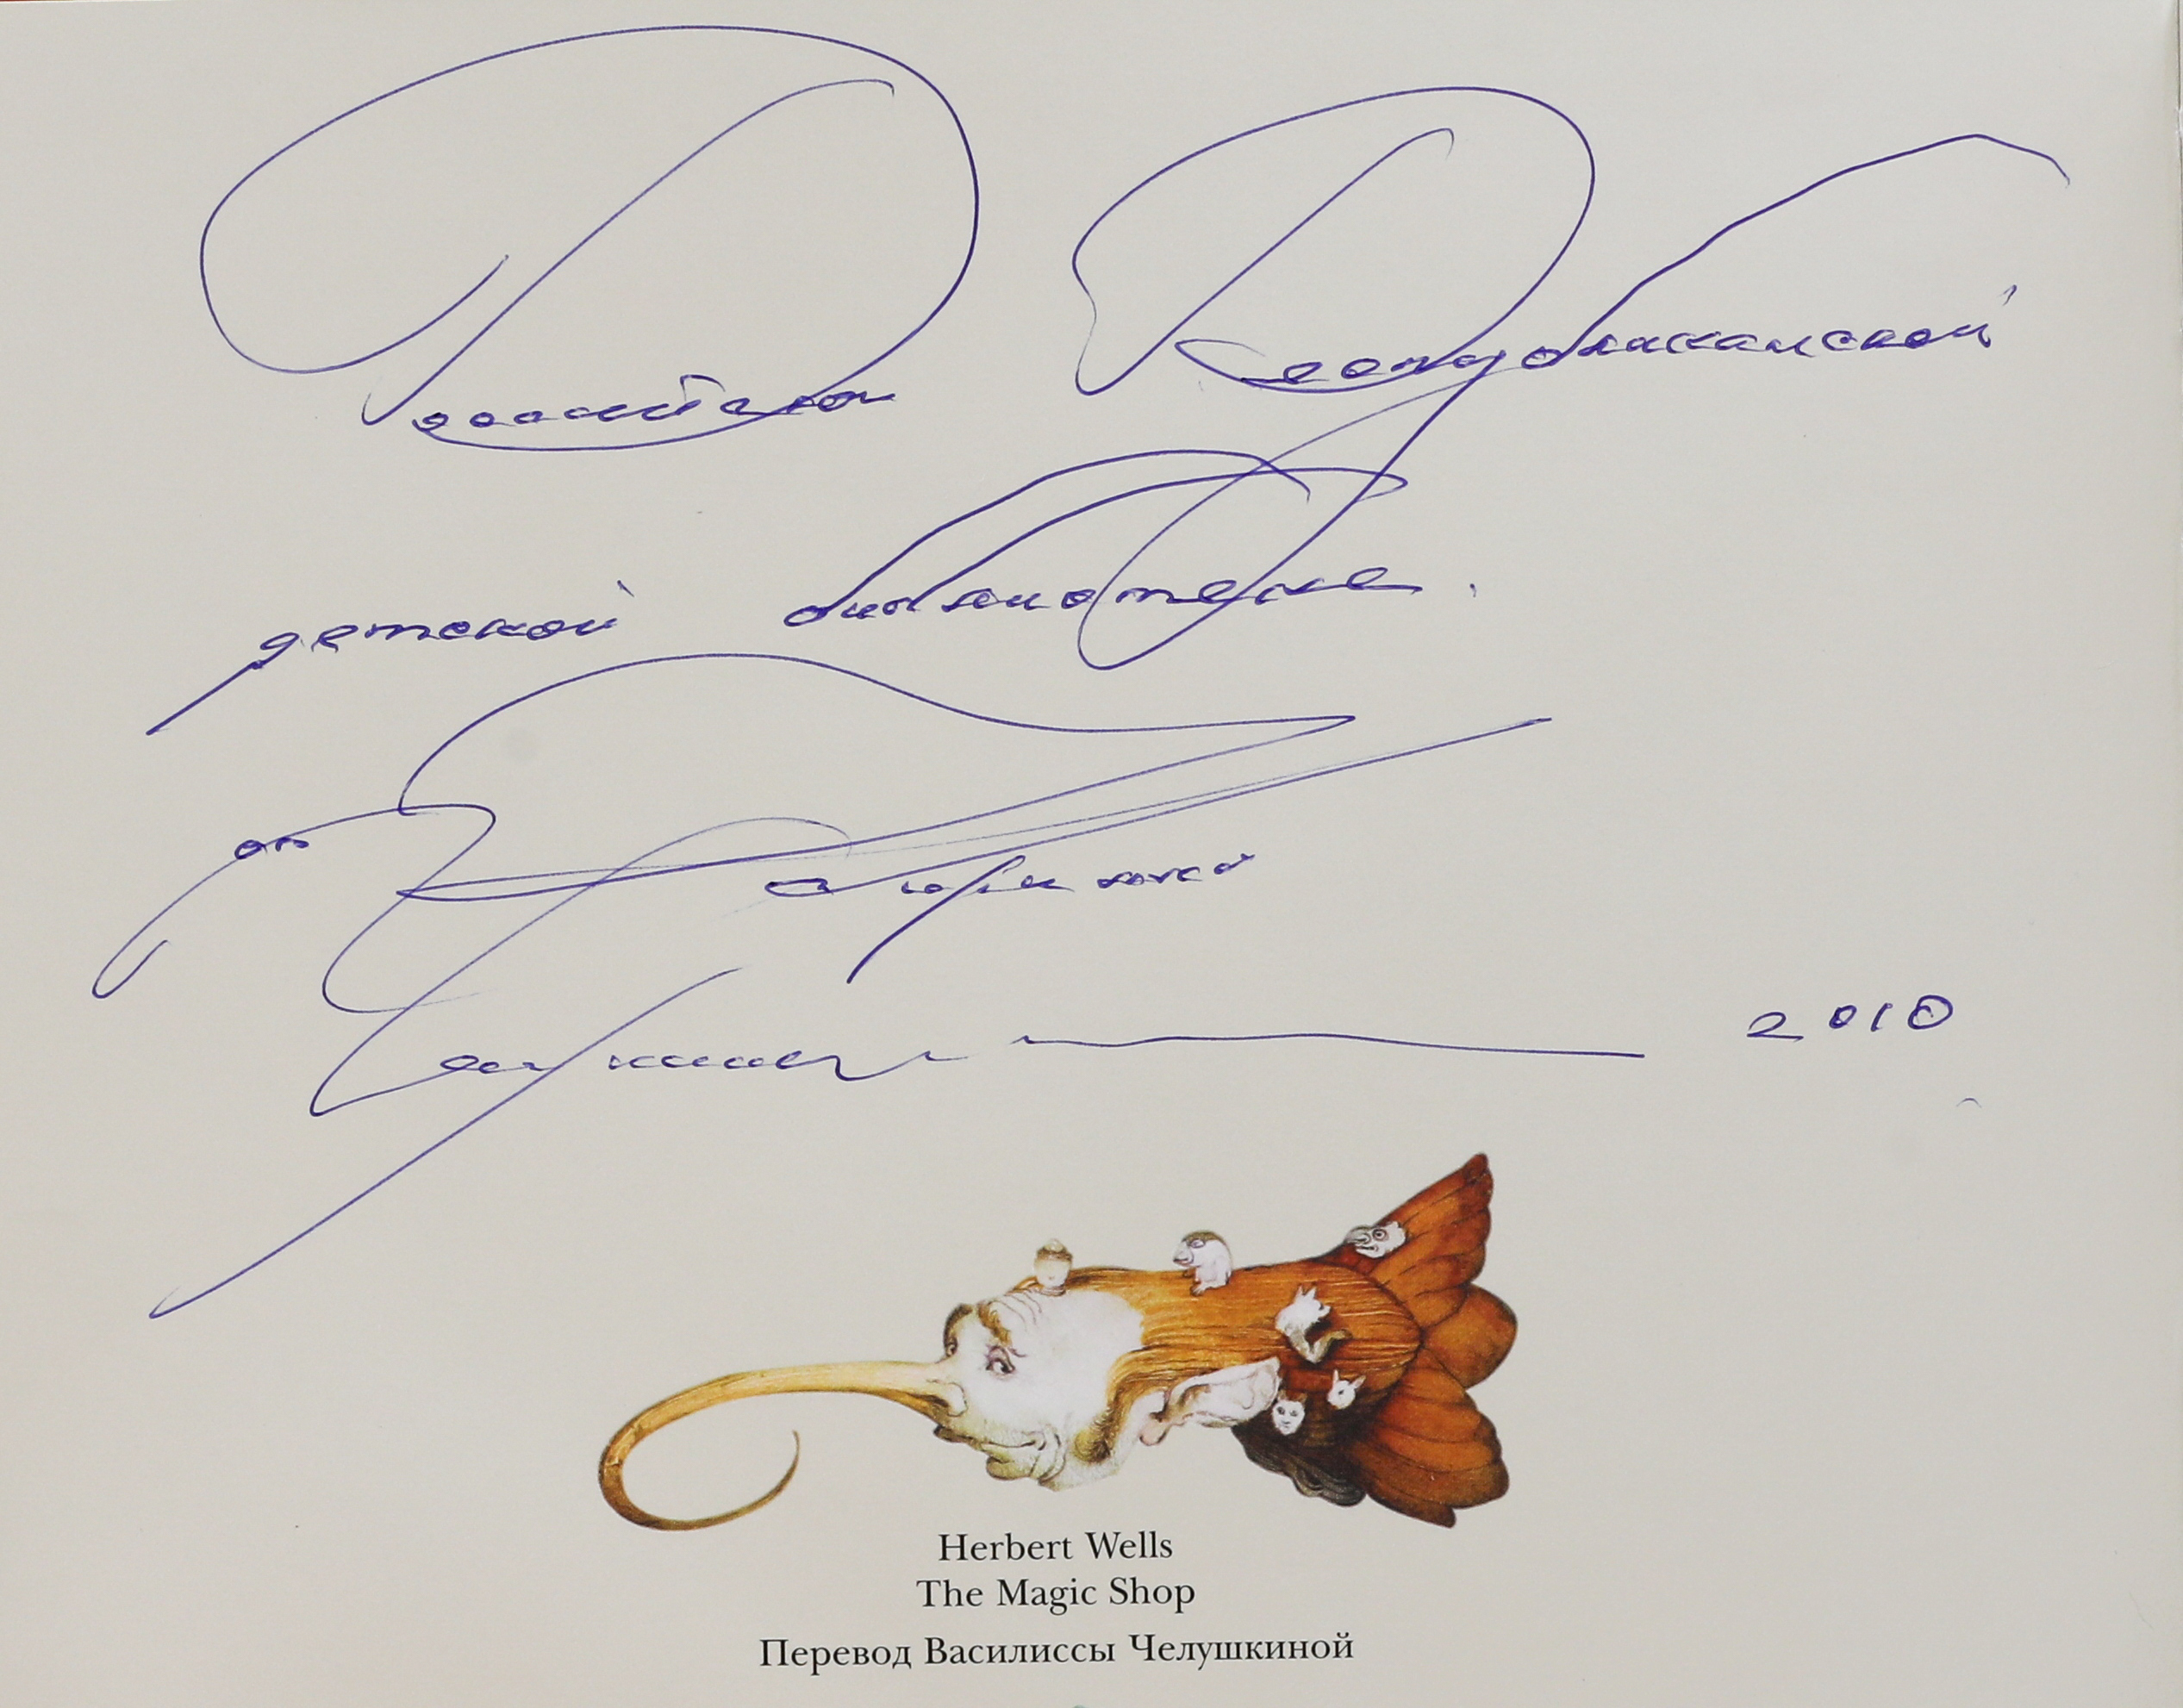 Российской Республиканской
детской библиотеке.
от
художника
2010
Herbert Wells
The Magic Shop
Перевод Василиссы Челушкиной